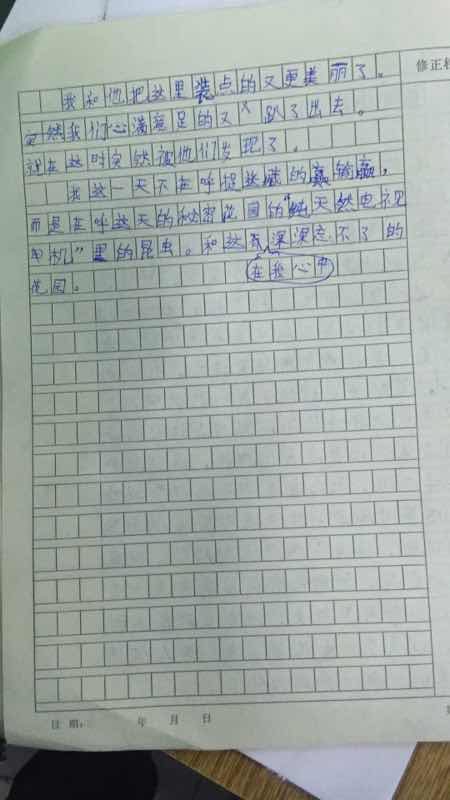 修正栏
我和他把这里装点的又更美丽了。
突然我们心满意足的又又趴了出去。
就在这时突然被他们发现了。
我这一天不在呼捉迷藏的输赢，
而是在呼这天的秘密花园的“纯天然电视
电机”里的昆虫。和这有深深忘不了的
在我心中
花园。
日期： 年 月 日